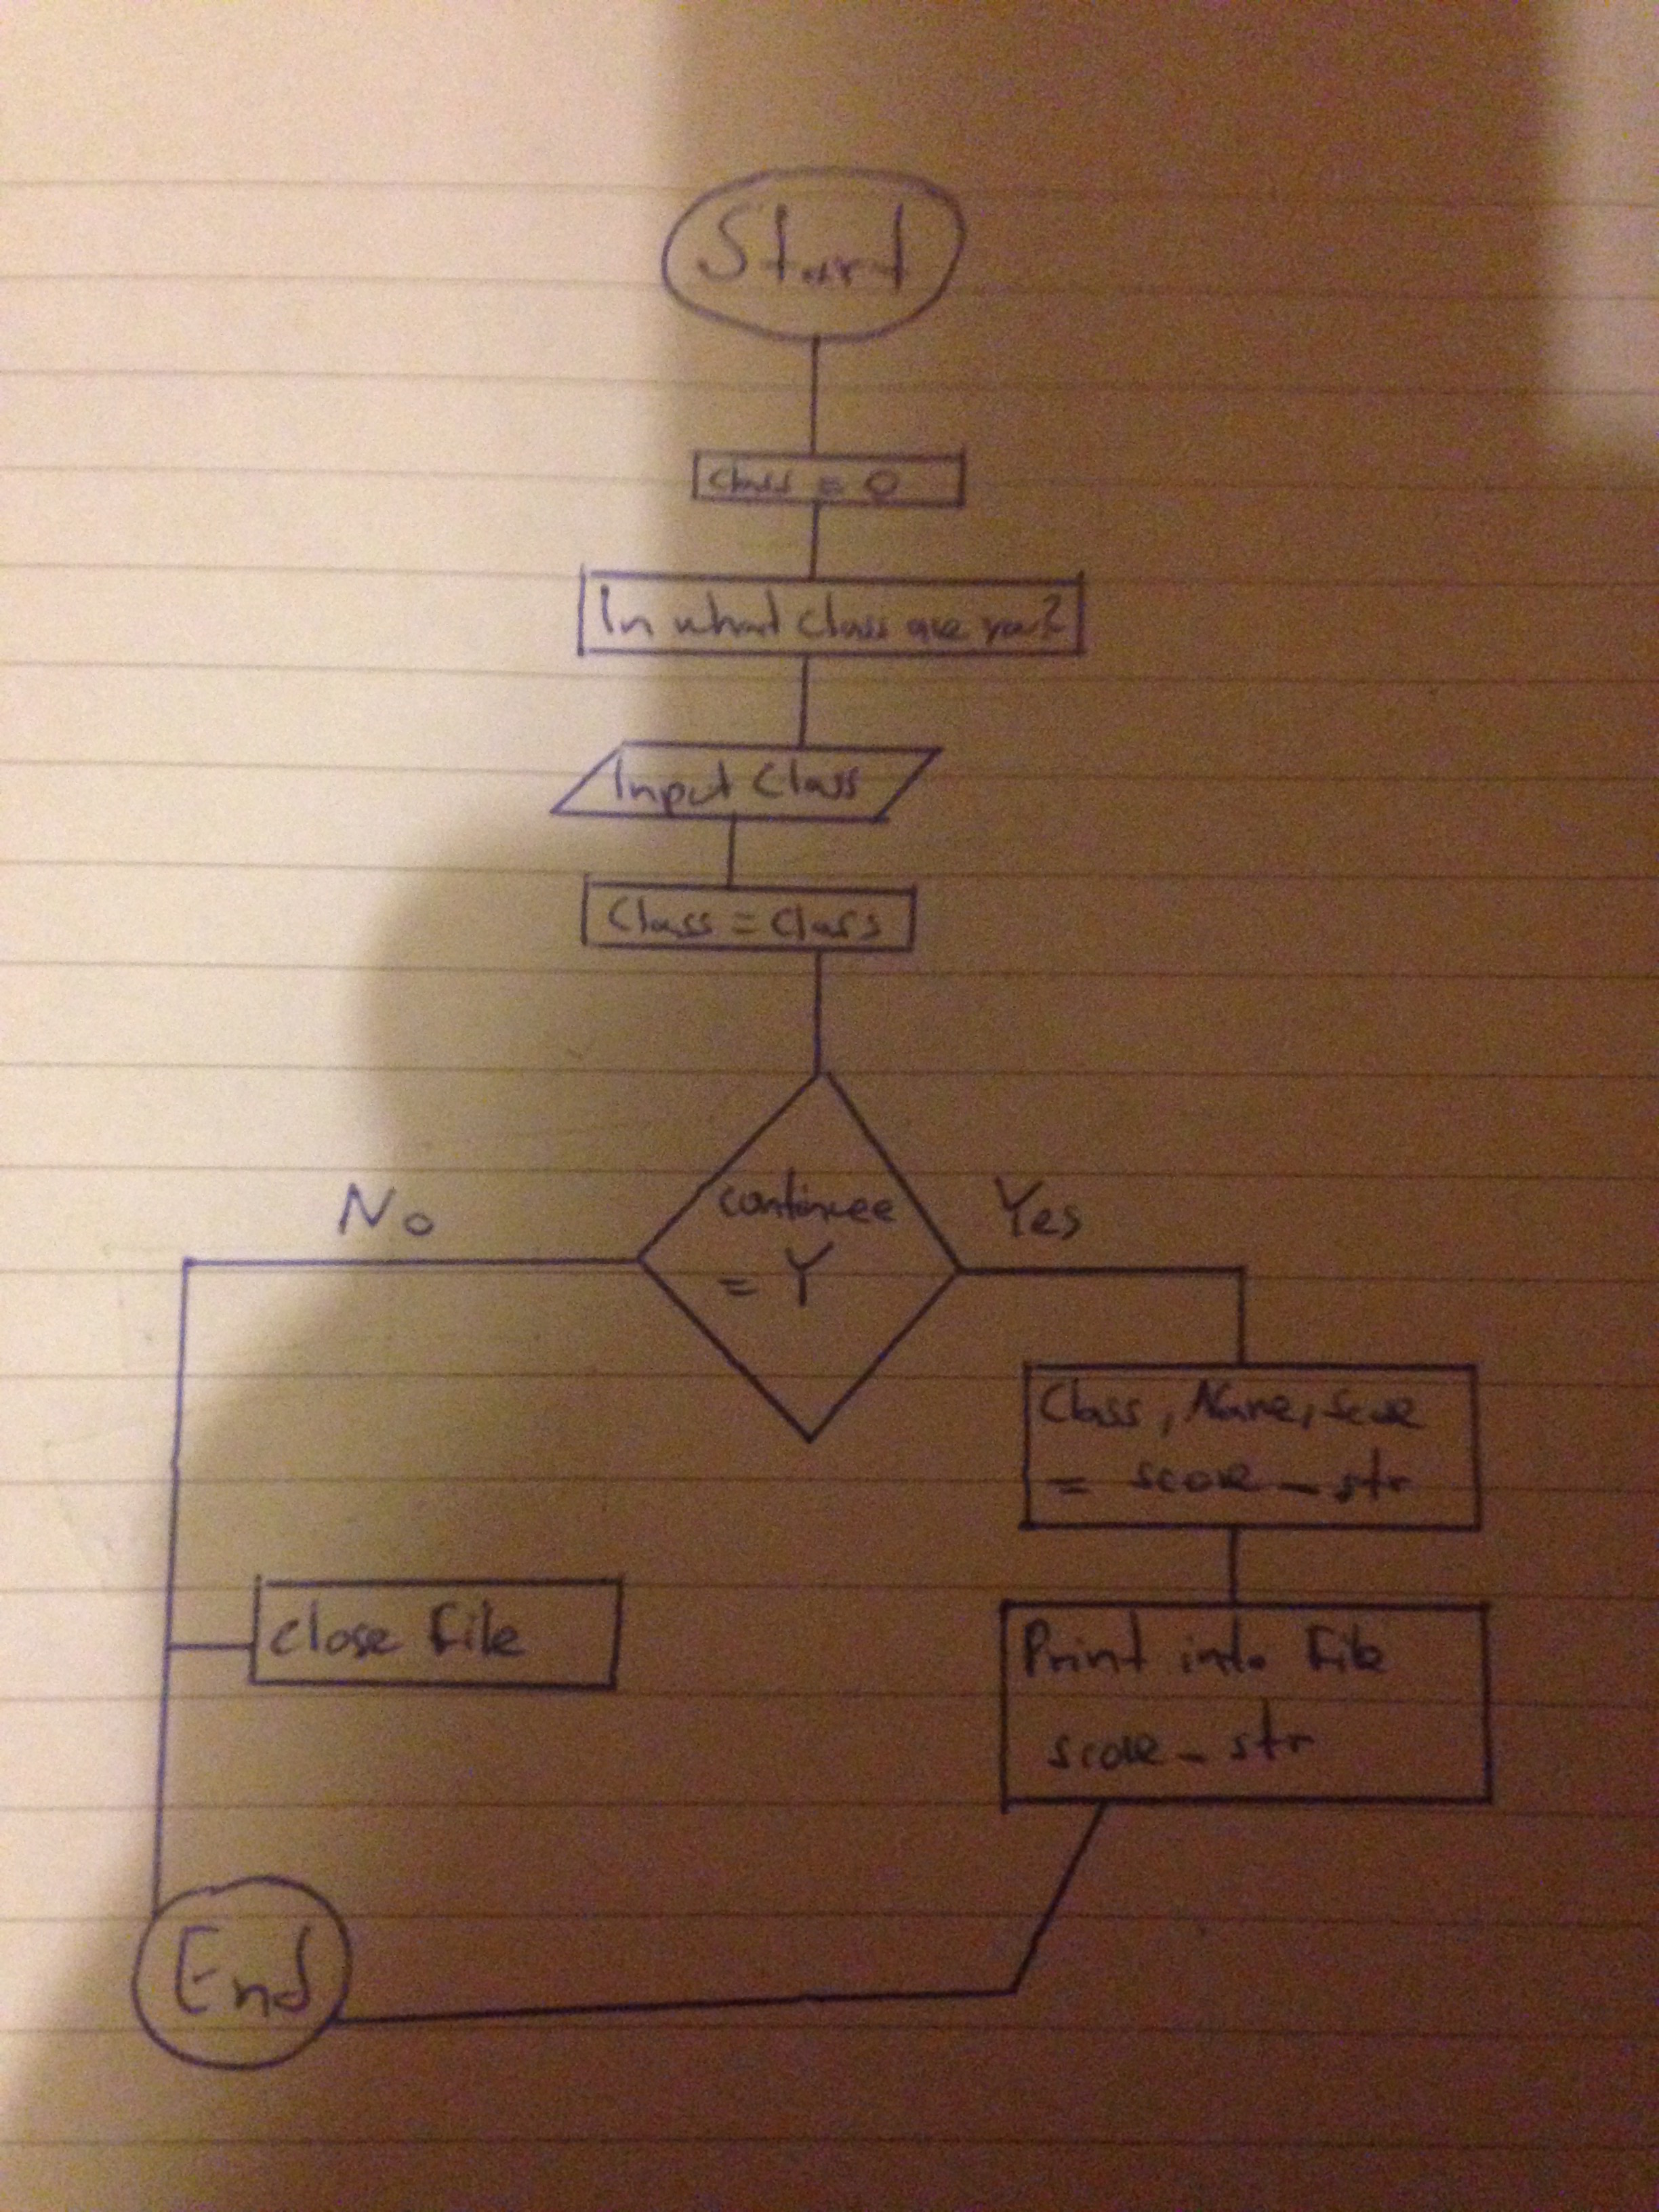 Start
class = 0
In what class are you?
Input Class
Class = Class
continuee
= Y
No
Yes
Class, Name, score
= score_str
Close File
Print into File
score_str
End